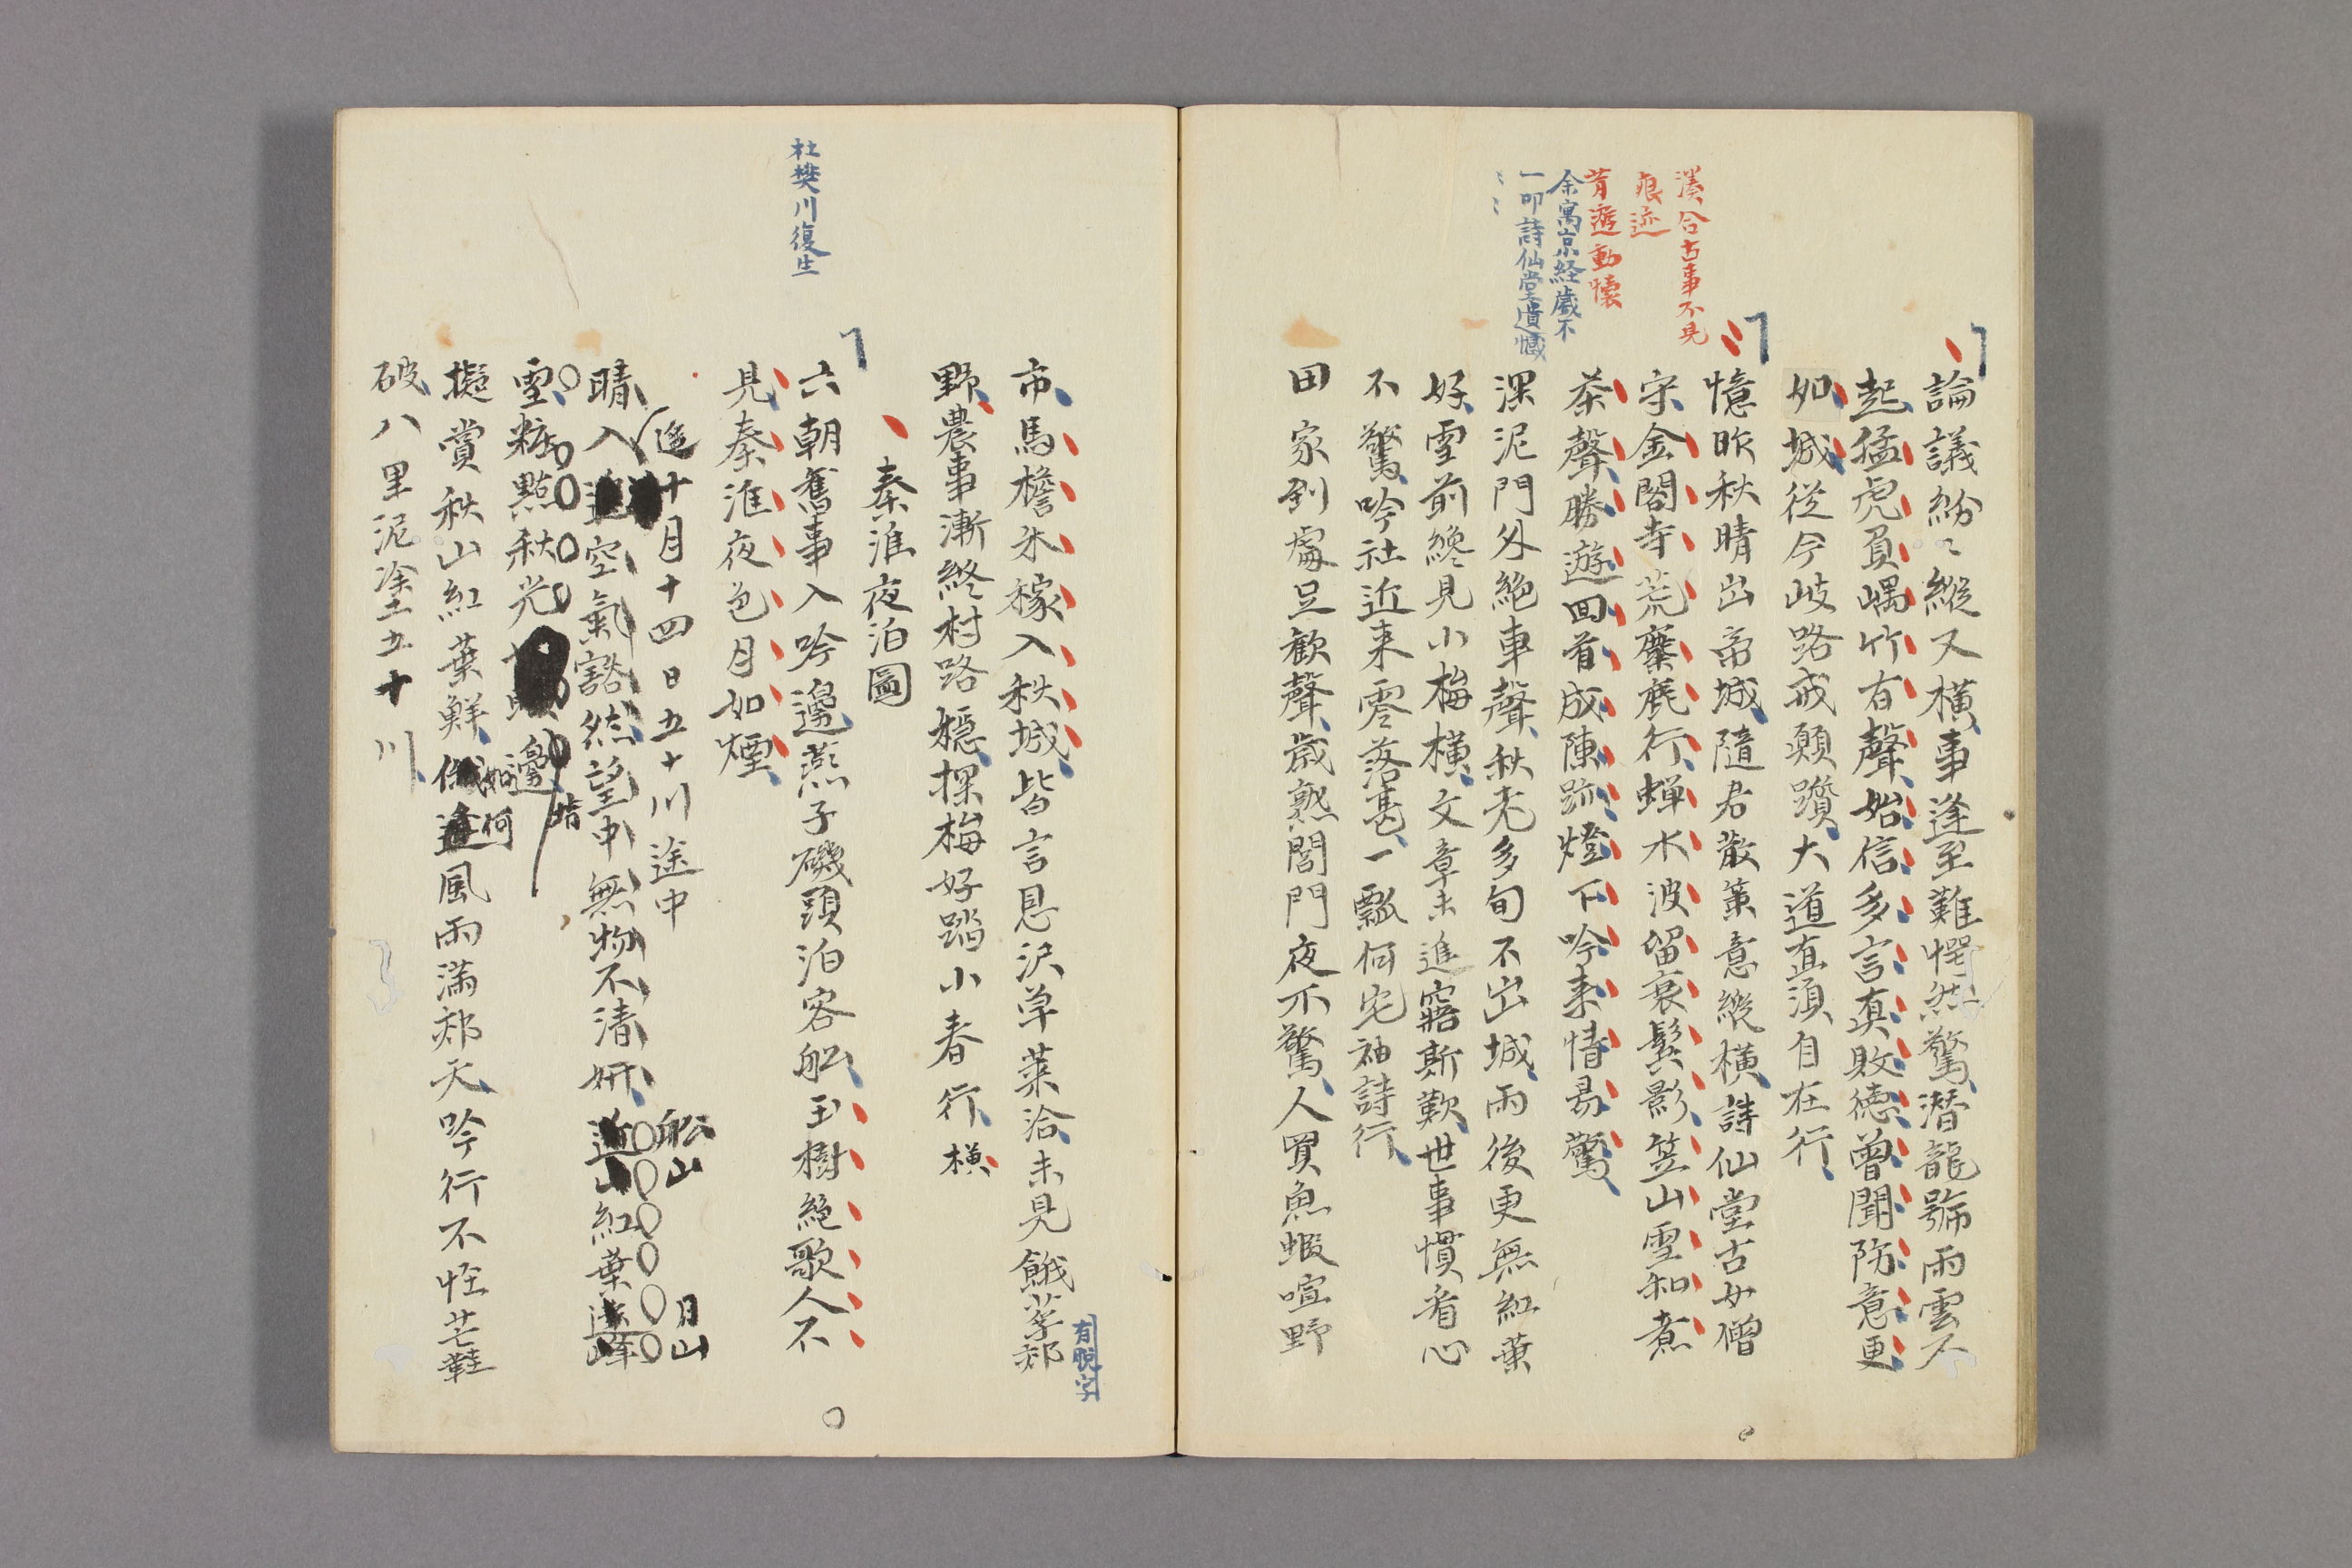 湊合古事不見
痕迹
昔遊動懐
余寓京経歳不
一叩詩仙堂遺憾
論議紛〻縦又横事逢至難愕然驚潜龍號雨雲不
起猛虎負嵎竹有聲始信多言真敗徳曽聞防意更
如城従今岐路戒顛躓大道直須自在行
憶昨秋晴出帝城随君散策意縦横詩仙堂古女僧
守金閣寺荒麋鹿行蝉水波留衰鬂影笠山雪和煮
茶聲勝遊回首成陳跡燈下吟来情易驚
深泥門外絶車聲秋老多旬不出城雨後更無紅葉
好雪前纔見小梅横文章未進窮斯歎世事慣看心
不驚吟社近来零落甚一瓢何宅袖詩行
田家到處足歓聲歳熟閭門夜不驚人買魚蝦喧野
市馬擔米稼入秋城皆言恩沢草莱洽未見餓莩郊
有脱字
野農事漸終村路穏探梅好踏小春行
横
秦淮夜泊圖
杜樊川復生
六朝舊事入吟邊燕子磯頭泊客舩玉樹絶歌人不
見秦淮夜色月如煙
十月十四日五十川途中
晴入空氣豁然望中無物不清妍紅葉
舩山
月山
雪粧點秋光邊
擬賞秋山紅葉鮮風雨満郊天吟行不怪芒鞋
如何
破八里泥塗五十川